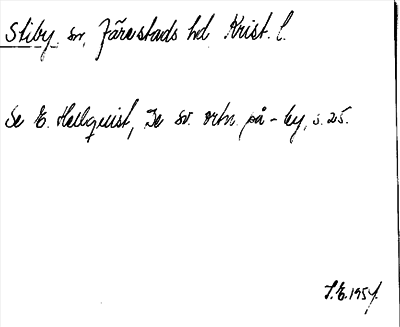 Stiby, sn, Järrestads hd Krist. l.
Se E. Hellquist, De sv. ortn på -by, s. 25.
S.E. 1954.